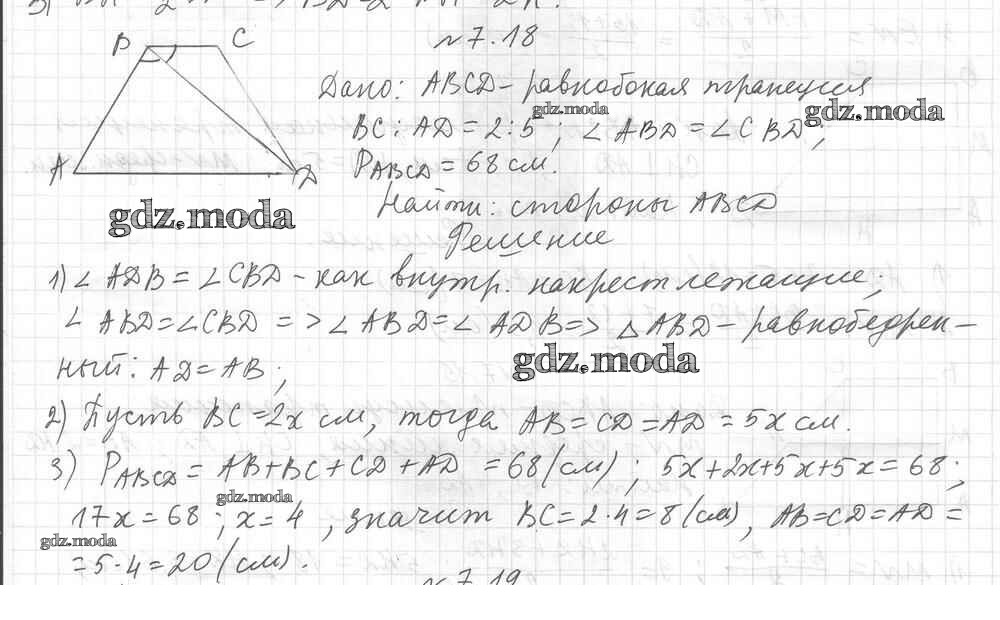 №7.18
B C
A D
Дано: ABCD - равнобокая трапеция
BC : AD = 2 : 5 ; ∠ABD = ∠CBD ;
P ABCD = 68 см.
Найти: стороны ABCD
Решение
1) ∠ADB = ∠CBD - как внутр. накрест лежащие;
∠ABD = ∠CBD => ∠ABD = ∠ADB => △ABD - равнобедрен-
ный: AD = AB ;
2) Пусть BC = 2x см, тогда AB = CD = AD = 5x см.
3) P ABCD = AB + BC + CD + AD = 68 (см) ; 5x + 2x + 5x + 5x = 68 ;
17x = 68 ; x = 4 , значит BC = 2·4 = 8 (см), AB = CD = AD =
= 5·4 = 20 (см).
№7.19
gdz.moda
gdz.moda
gdz.moda
gdz.moda
gdz.moda
gdz.moda